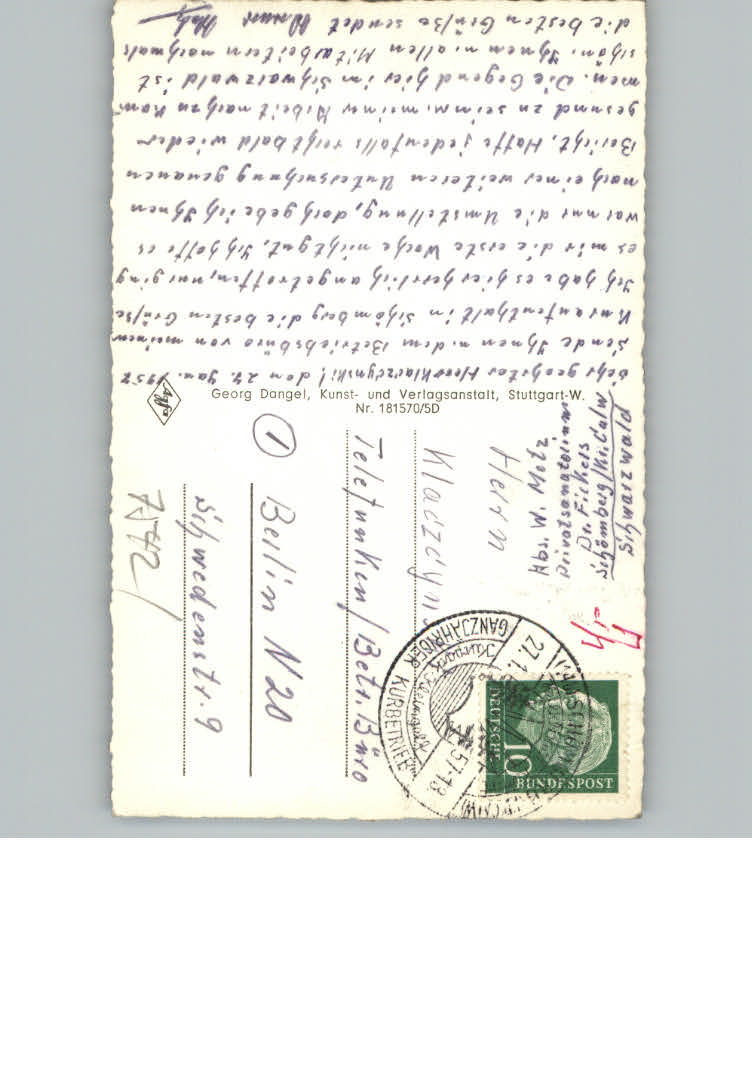 Sehr geehrter Herr Klaczynski! den 27. Jan. 1957
Sende Ihnen u. dem Betriebsbüro von meinem
Kuraufenthalt in Schömberg die besten Grüße
Ich habe es hier herrlich angetroffen, nur ging
es mir die erste Woche nicht gut. Ich hoffe es
war nur die Umstellung, doch gebe ich Ihnen
nach einer weiteren Untersuchung genauen
Bericht. Hoffe jedenfalls recht bald wieder
gesund zu sein u. meiner Arbeit nachzukom
men. Die Gegend hier im Schwarzwald ist
schön. Ihnen u. allen Mitarbeitern nochmals
die besten Grüße sendet Metz
Agfa
Georg Dangel, Kunst- und Verlagsanstalt, Stuttgart-W.
Nr. 181570/5D
Abs. W. Metz
Privatsanatorium
Dr. Fickels
Schömberg/Kr. Calw
Schwarzwald
Herrn
Klaczyns
Telefunken/Betr. Büro
1
Berlin N 20
Schwedenstr. 9
GANZJÄHRIGER KURBETRIEB
27.1.57-18
10
DEUTSCHE
BUNDESPOST